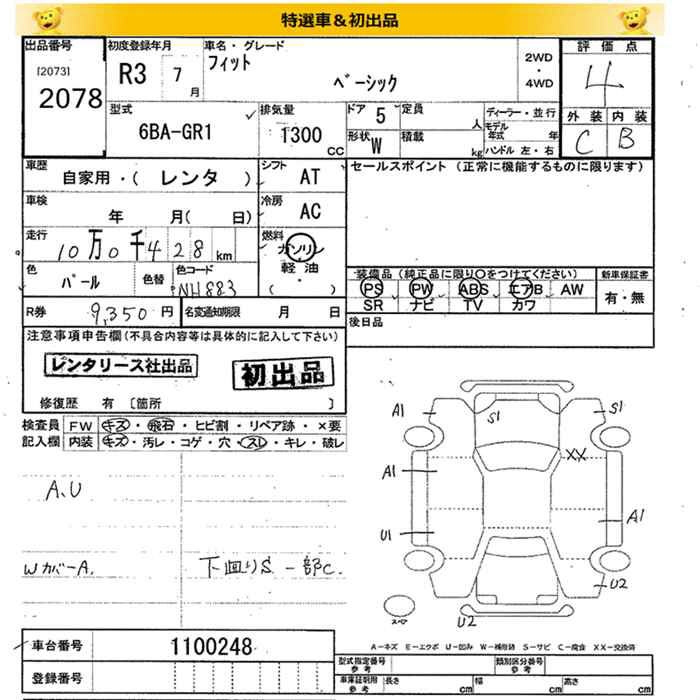 特選車&初出品
出品番号 初度登録年月 車名・グレード 評価点
[2073] R3 7月 フィット 2WD・4WD 4
2078 ベーシック
型式 排気量 ドア 5 定員 人 ディーラー・並行 外装 内装
6BA-GR1 1300 CC 形状 W 積載 kg モデル年式 年 C B
ハンドル 左・右
車歴 自家用・(レンタ) シフト AT セールスポイント (正常に機能するものに限ります)
車検 年 月( 日) 冷房 AC
走行 10万0千428 km 燃料 ガソリン
軽油
・
( )
色 パール 色替 色コード NH883
装備品 (純正品に限り〇をつけてください) 新車保証書
PS PW ABS エアB AW 有・無
SR ナビ TV カワ
R券 9,350円 名変通知期限 月 日 後日品
注意事項申告欄(不具合内容等は具体的に記入して下さい)
レンタリース社出品 初出品
修復歴 有〔箇所 〕
検査員 FW キズ・飛石・ヒビ割・リペア跡・×要
記入欄 内装 キズ・汚レ・コゲ・穴・スレ・キレ・破レ
A1 S1 S1
XX
A1
A1
U1
U2
U2
スペア
A,U
WカバーA. 下回りS 一部C.
車台番号 1100248
登録番号
A-キズ E-エクボ U-凹み W-補修跡 S-サビ C-腐食 XX-交換済
型式指定番号 参考 類別区分番号 参考
車庫証明用 参考 長さ cm 幅 cm 高さ cm